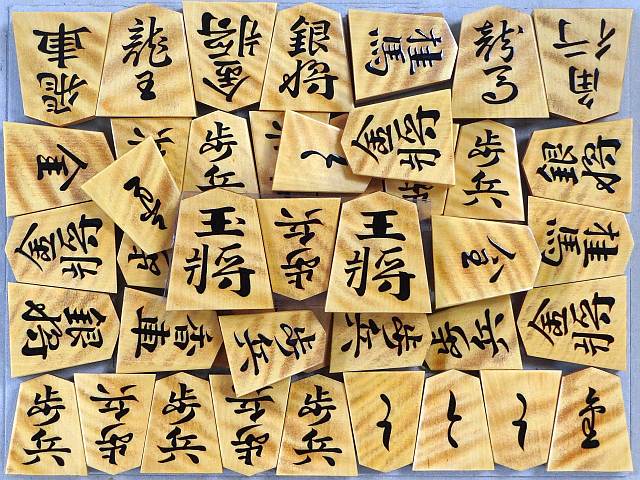 香車
龍王
金将
銀将
桂馬
龍馬
歩兵
と
金将
歩兵
銀将
金将
王将
歩兵
王将
桂馬
銀将
香車
歩兵
歩兵
歩兵
金将
歩兵
歩兵
歩兵
歩兵
歩兵
と
と
と